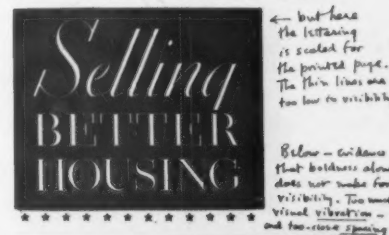 Selling
BETTER
HOUSING
← but here
the lettering
is scaled for
the printed page.
The thin lines are
too low in visibility
Below — evidence
that boldness alone
does not make for
visibility. Too much
visual vibration —
and too-close spacing